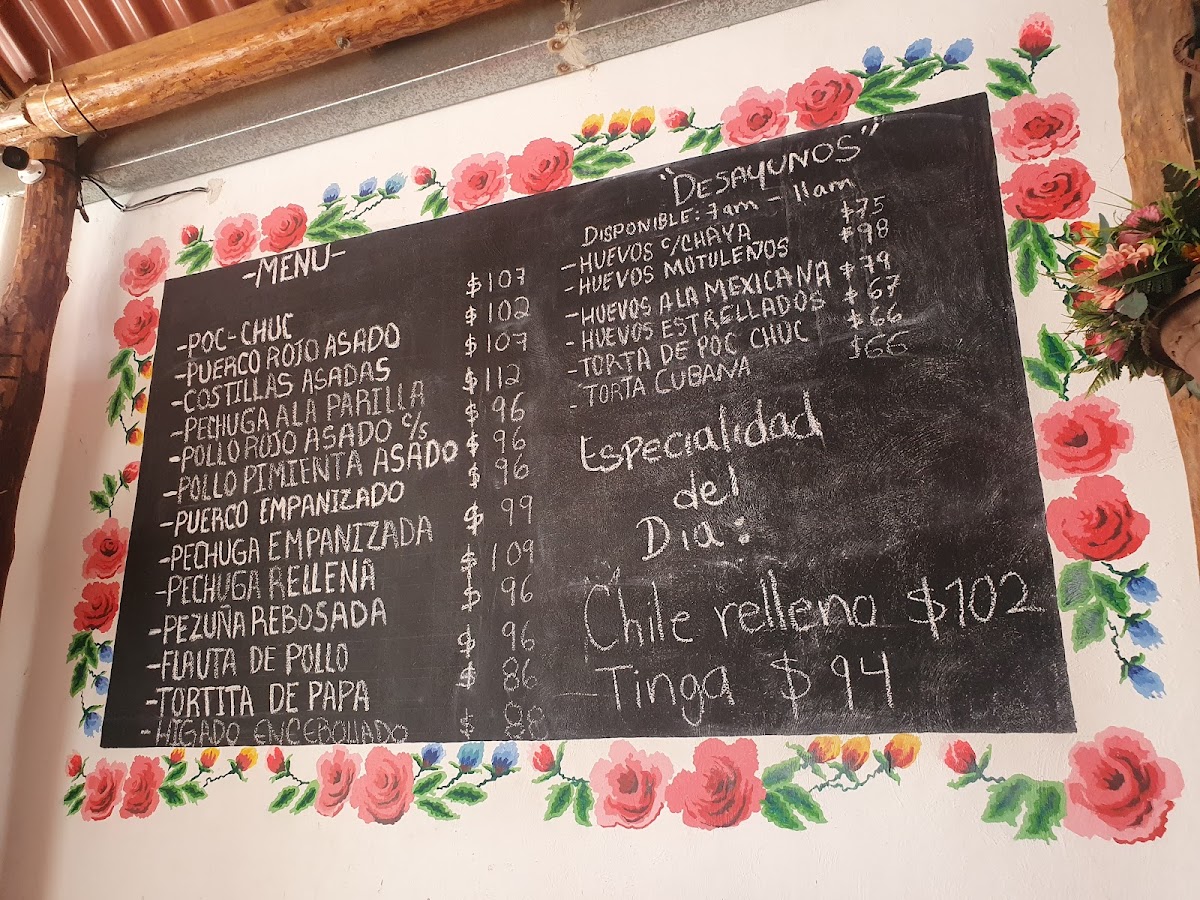 -MENU-
-POC-CHUC $107
-PUERCO ROJO ASADO $102
-COSTILLAS ASADAS $107
-PECHUGA A LA PARILLA $112
-POLLO ROJO ASADO C/S $96
-POLLO PIMIENTA ASADO $96
-PUERCO EMPANIZADO $96
-PECHUGA EMPANIZADA $99
-PECHUGA RELLENA $109
-PEZUÑA REBOSADA $96
-FLAUTA DE POLLO $96
-TORTITA DE PAPA $86
-HIGADO ENCEBOLLADO $88
"DESAYUNOS"
DISPONIBLE: 7am - 11am
-HUEVOS C/CHAYA $75
-HUEVOS MOTULEÑOS $98
-HUEVOS A LA MEXICANA $79
-HUEVOS ESTRELLADOS $67
-TORTA DE POC CHUC $66
-TORTA CUBANA $66
Especialidad
del
Dia:
Chile relleno $102
-Tinga $94